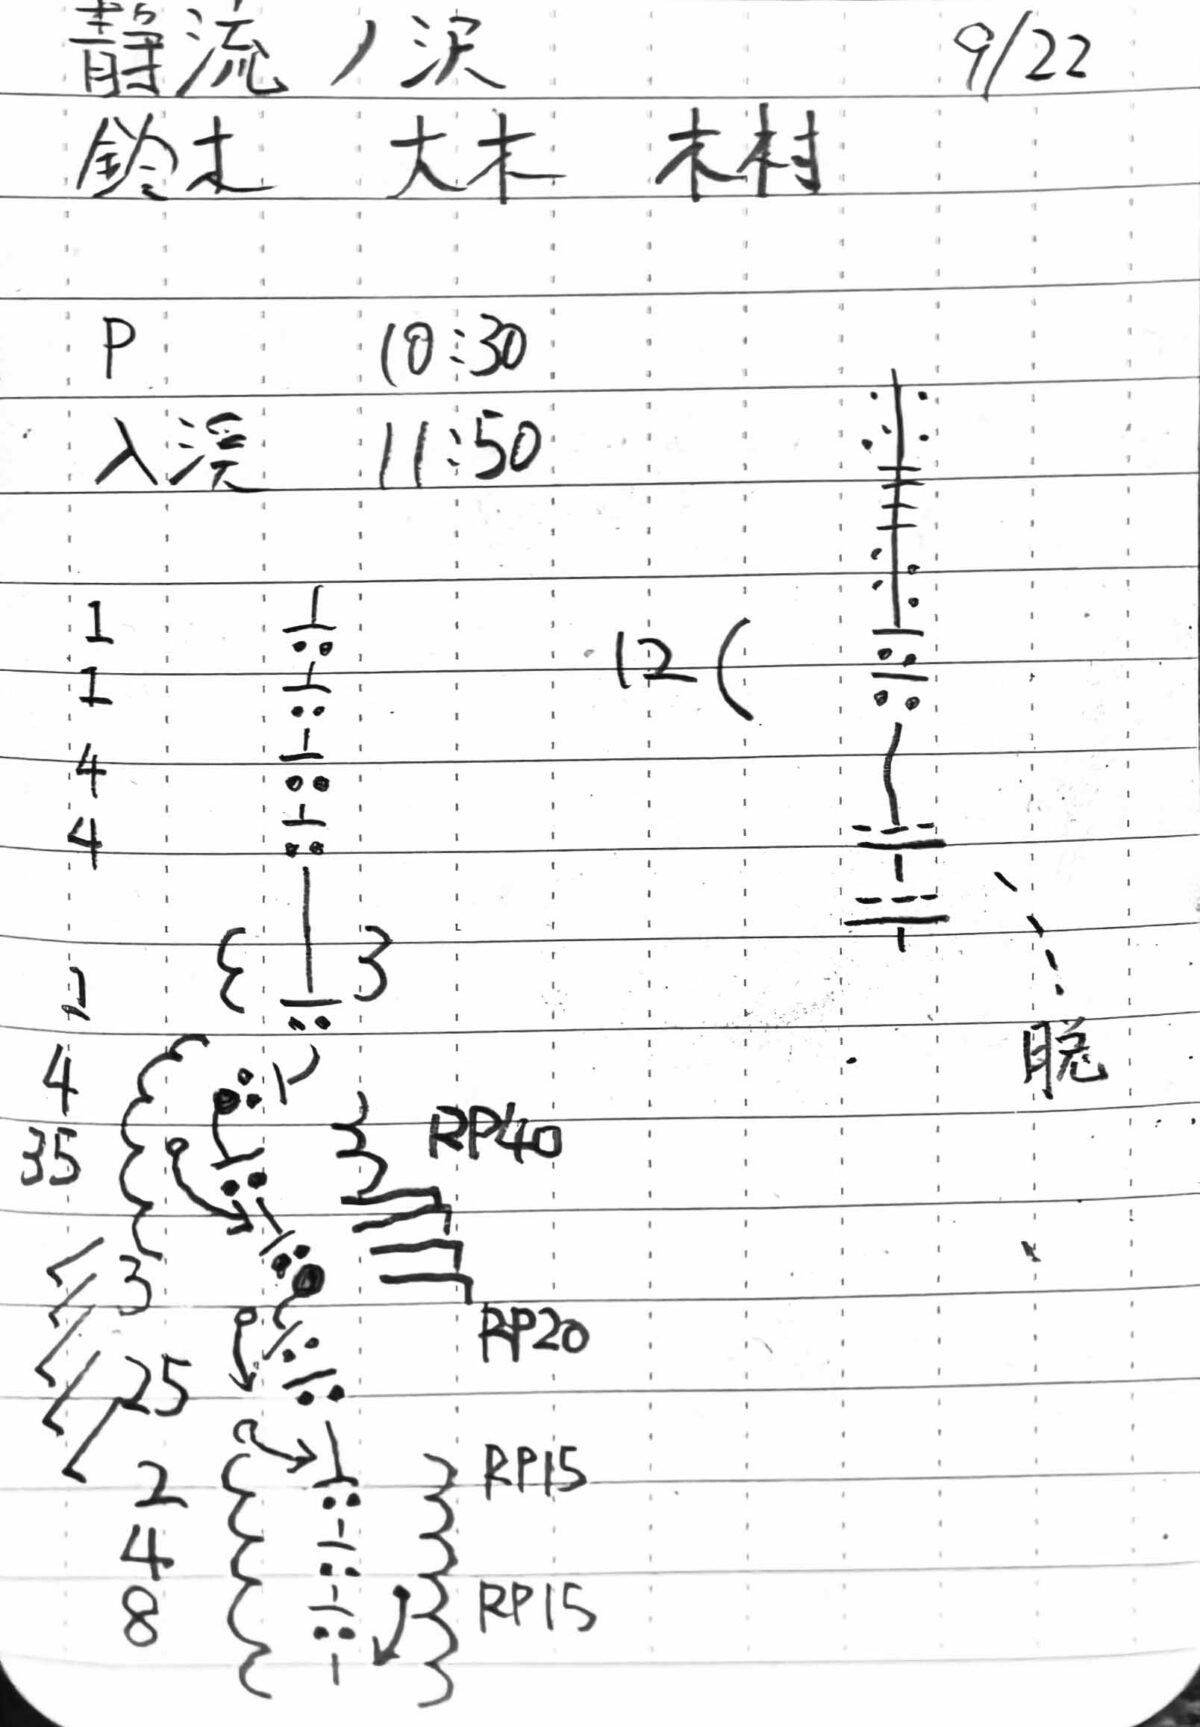 静流ノ沢 9/22
鈴木 大木 木村
P 10:30
入渓 11:50
1
1
12 (
4
4
2
4
脱
35
RP40
3
RP20
25
2
RP15
4
8
RP15